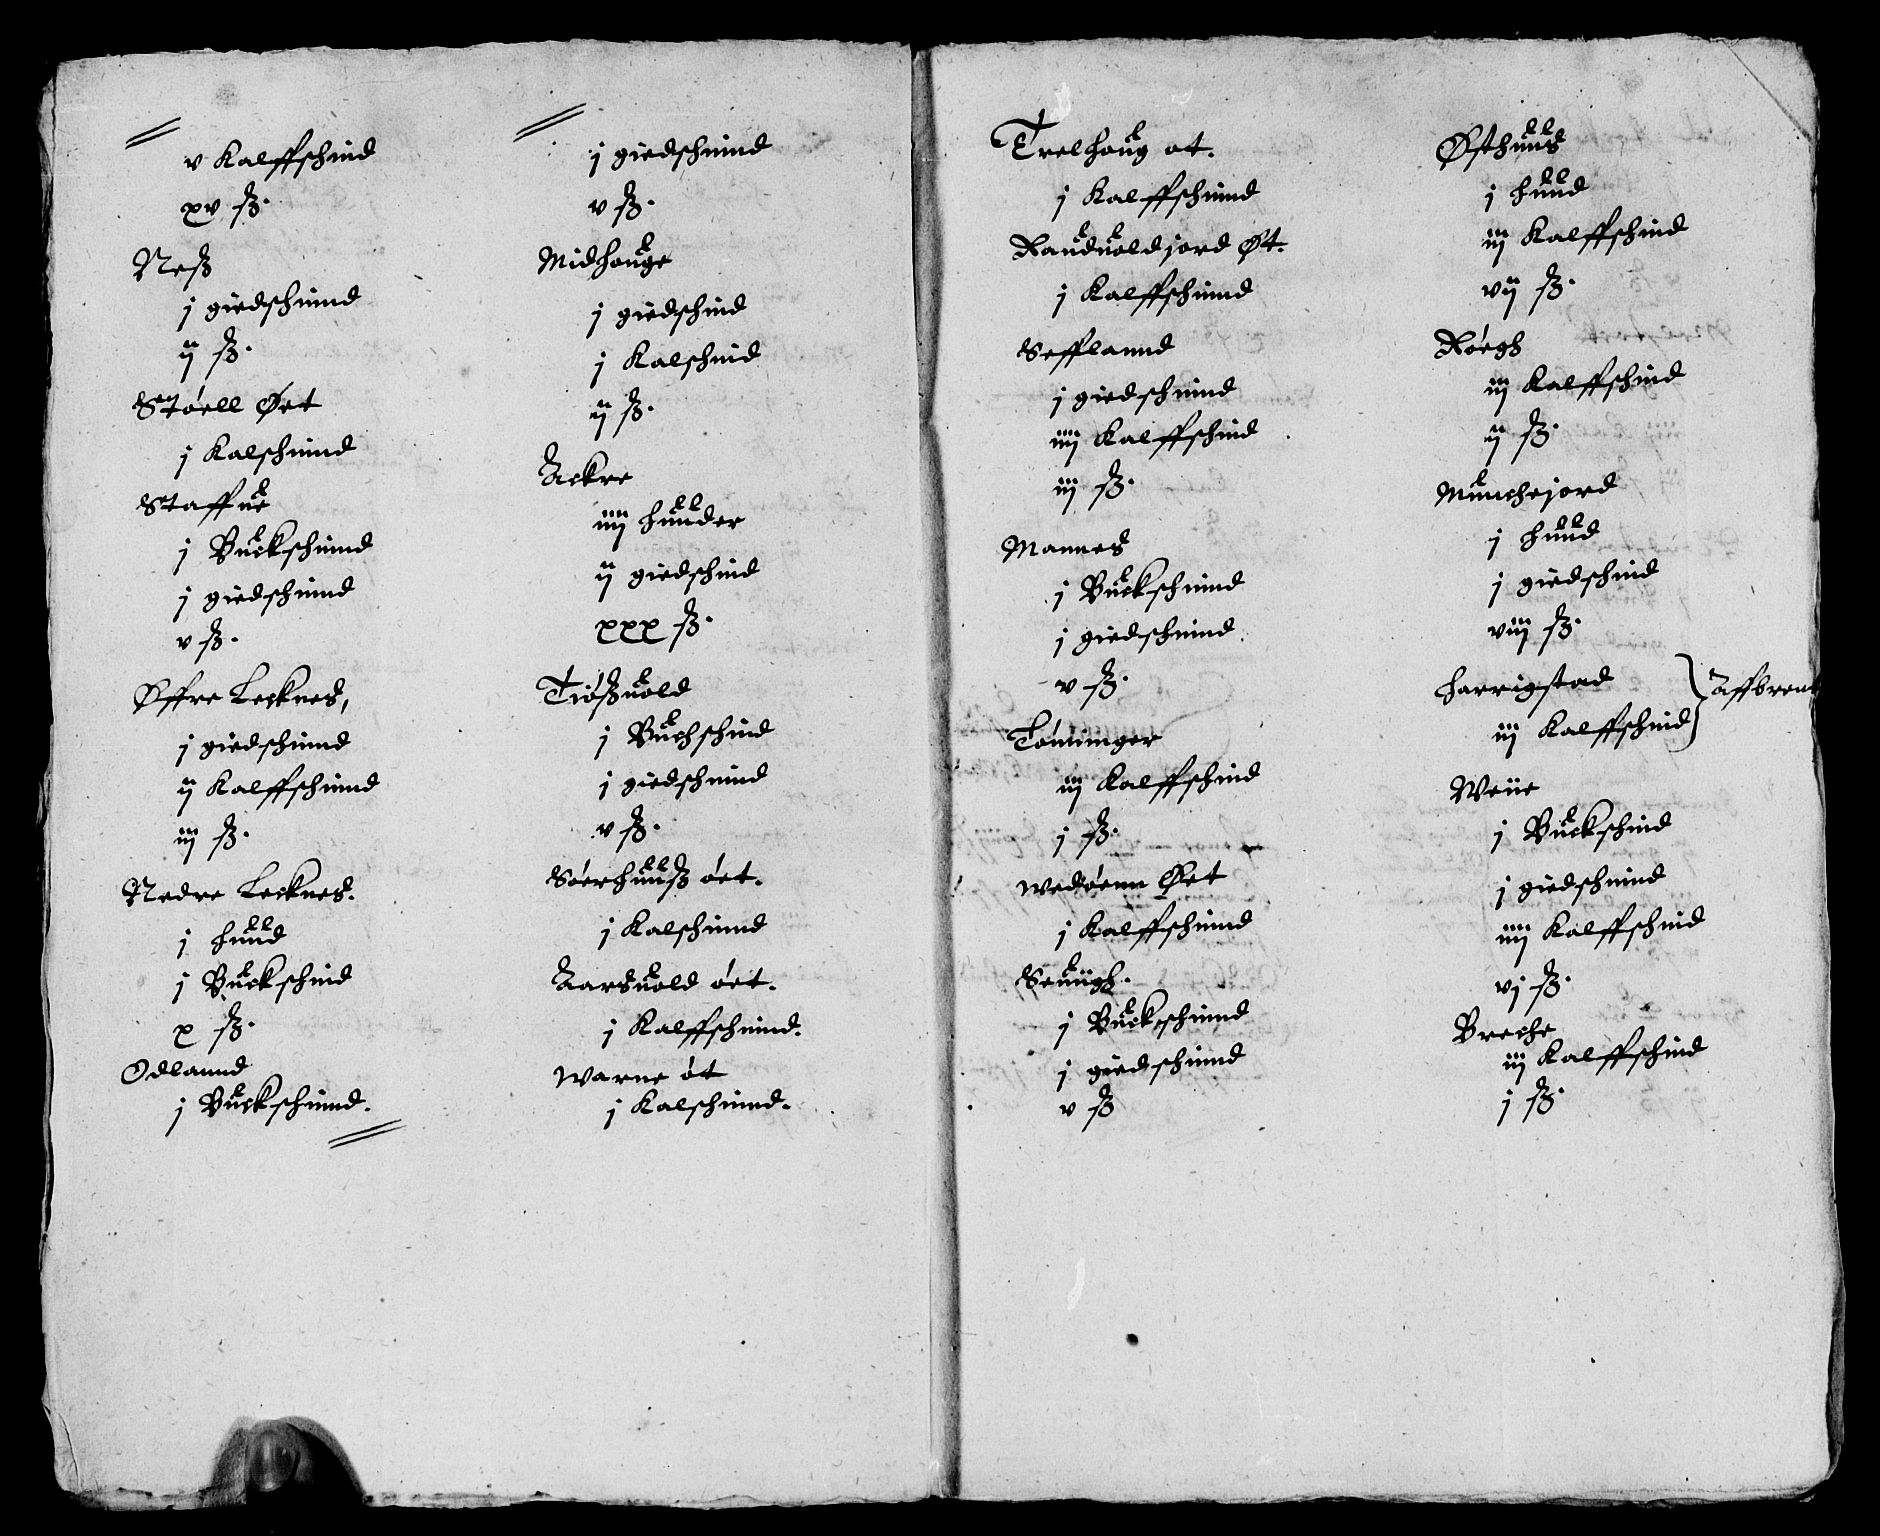 v Kalffschind
xv ß.
Neß
j giedschinnd
ij ß.
Støell Øet
j Kalschinnd
Staffue
j Buckschinnd
j giedschinnd
v ß.
Øffre Lecknes,
j giedschinnd
ij Kalffschinnd
iij ß.
Nedre Lecknes.
j huud
j Buckschind
x ß.
Odlannd
j Buckschinnd.
j giedschinnd
v ß.
Midhouge
j giedschind
j Kalschind
ij ß.
Ackre
iiij huuder
ij giedschind
xxx ß.
Tiøßuold
j Buchschind
j giedschnind
v ß.
Søerhuuß øet.
j Kalschinnd
Aarsuold øet.
j Kalffschinnd.
Warne øt
j Kalschinnd.
Trelhoug øt.
j Kalffschinnd
Rauduoldjord Øt.
j Kalffschinnd
Sefflannd
j giedschnind
iiij Kalffschind
iij ß.
Mannes
j Buckschinnd
j giedschnind.
v ß.
Tøninger
iij Kalffschind
j ß.
Wedøenn Øet
j Kalffschinnd
Seuügh.
j Buckschinnd
j giedschinnd
v ß
Østhuus
j huud
iij Kalffschind
vij ß.
Røegh
iij Kalffschind
ij ß.
Munchejord
j huud
j giedschind
viij ß.
Harrigstad
iij Kalffschind } Affbrent
Weüe
j Buckschind
j giedschnind
iiij Kalffschnid
vj ß.
Breche
iij Kalffschind
j ß.